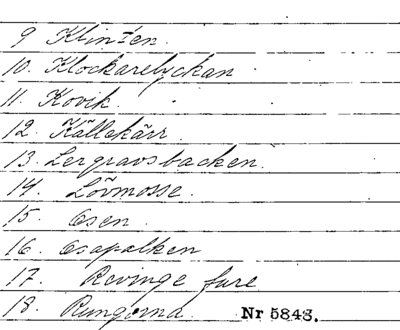 9 Klinten.
10. Klockarelyckan
11. Kovik.
12. Källekärr.
13. Lergravsbacken.
14. Lövmosse.
15. Osen.
16 Osapalken
17. Revinge fure
18. Rungorna Nr 5848.